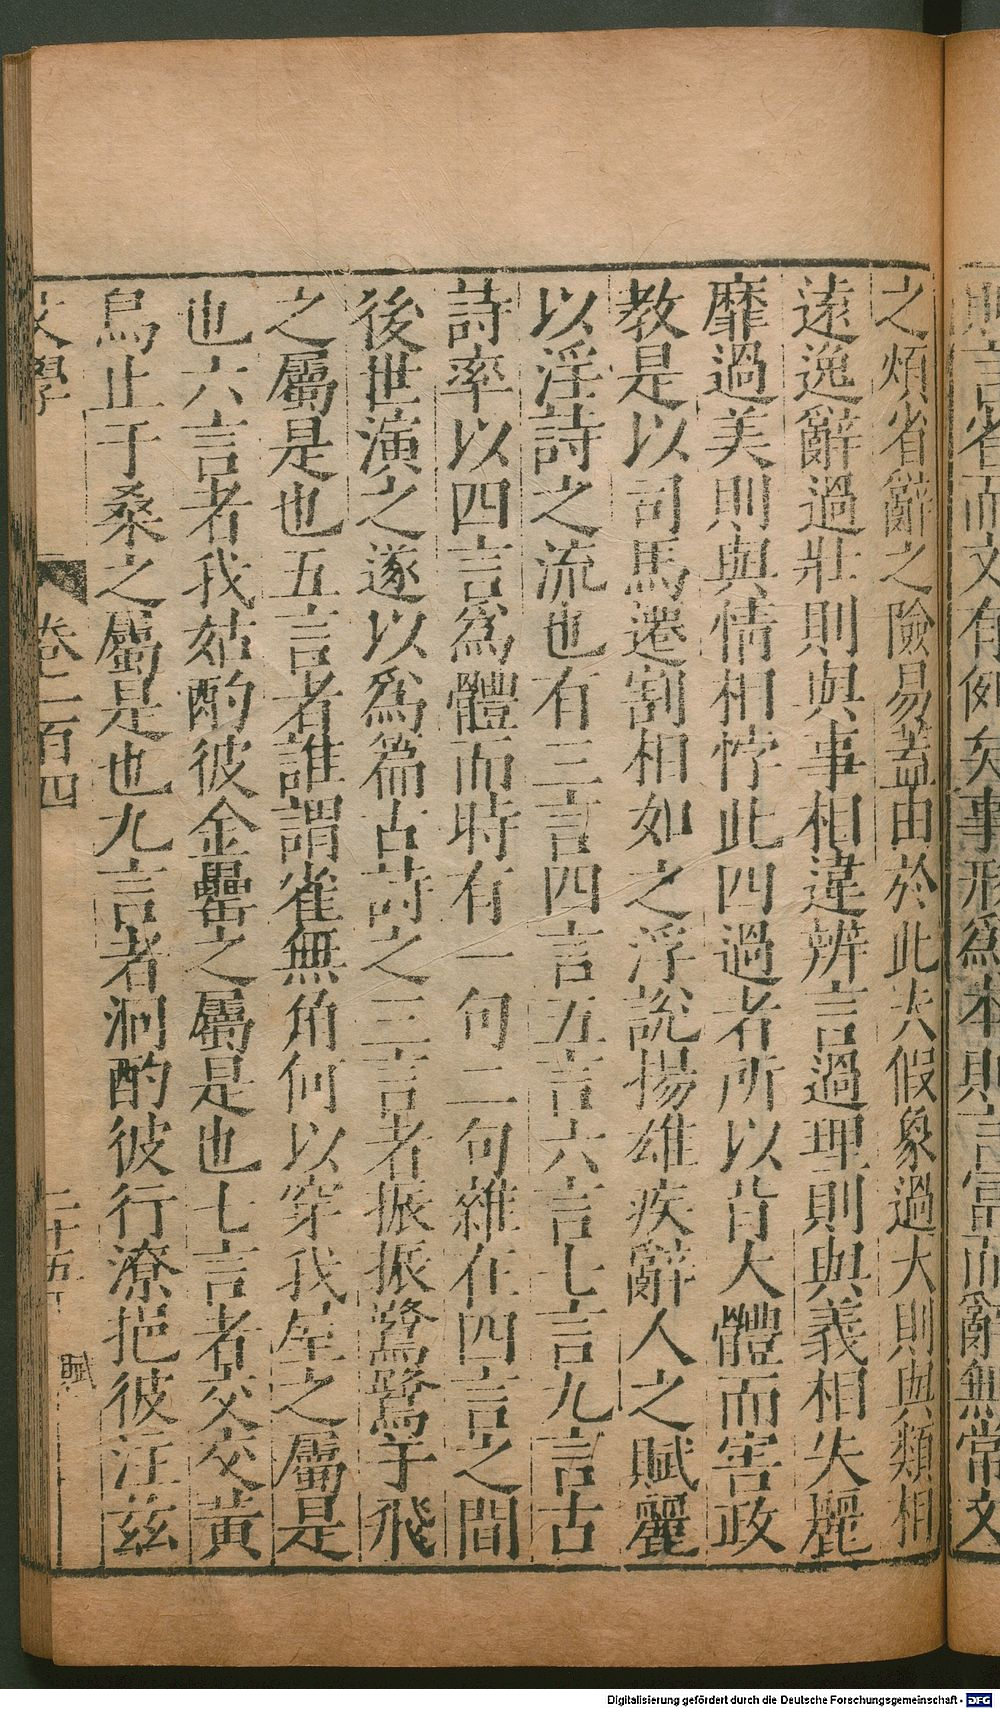 則言省而文有例矣事形爲本則言富而辭無常文
之煩省辭之險易蓋由於此夫假象過大則與類相
遠逸辭過壯則與事相違辨言過理則與義相失麗
靡過美則與情相悖此四過者所以背大體而害政
教是以司馬遷割相如之浮說揚雄疾辭人之賦麗
以淫詩之流也有三言四言五言六言七言九言古
詩率以四言爲體而時有一句二句雜在四言之間
後世演之遂以爲篇古詩之三言者振振鷺鷺于飛
之屬是也五言者誰謂雀無角何以穿我屋之屬是
也六言者我姑酌彼金罍之屬是也七言者交交黃
鳥止于桑之屬是也九言者泂酌彼行潦挹彼注兹
文學 卷二百四 二十五 賦
Digitalisierung gefördert durch die Deutsche Forschungsgemeinschaft - DFG